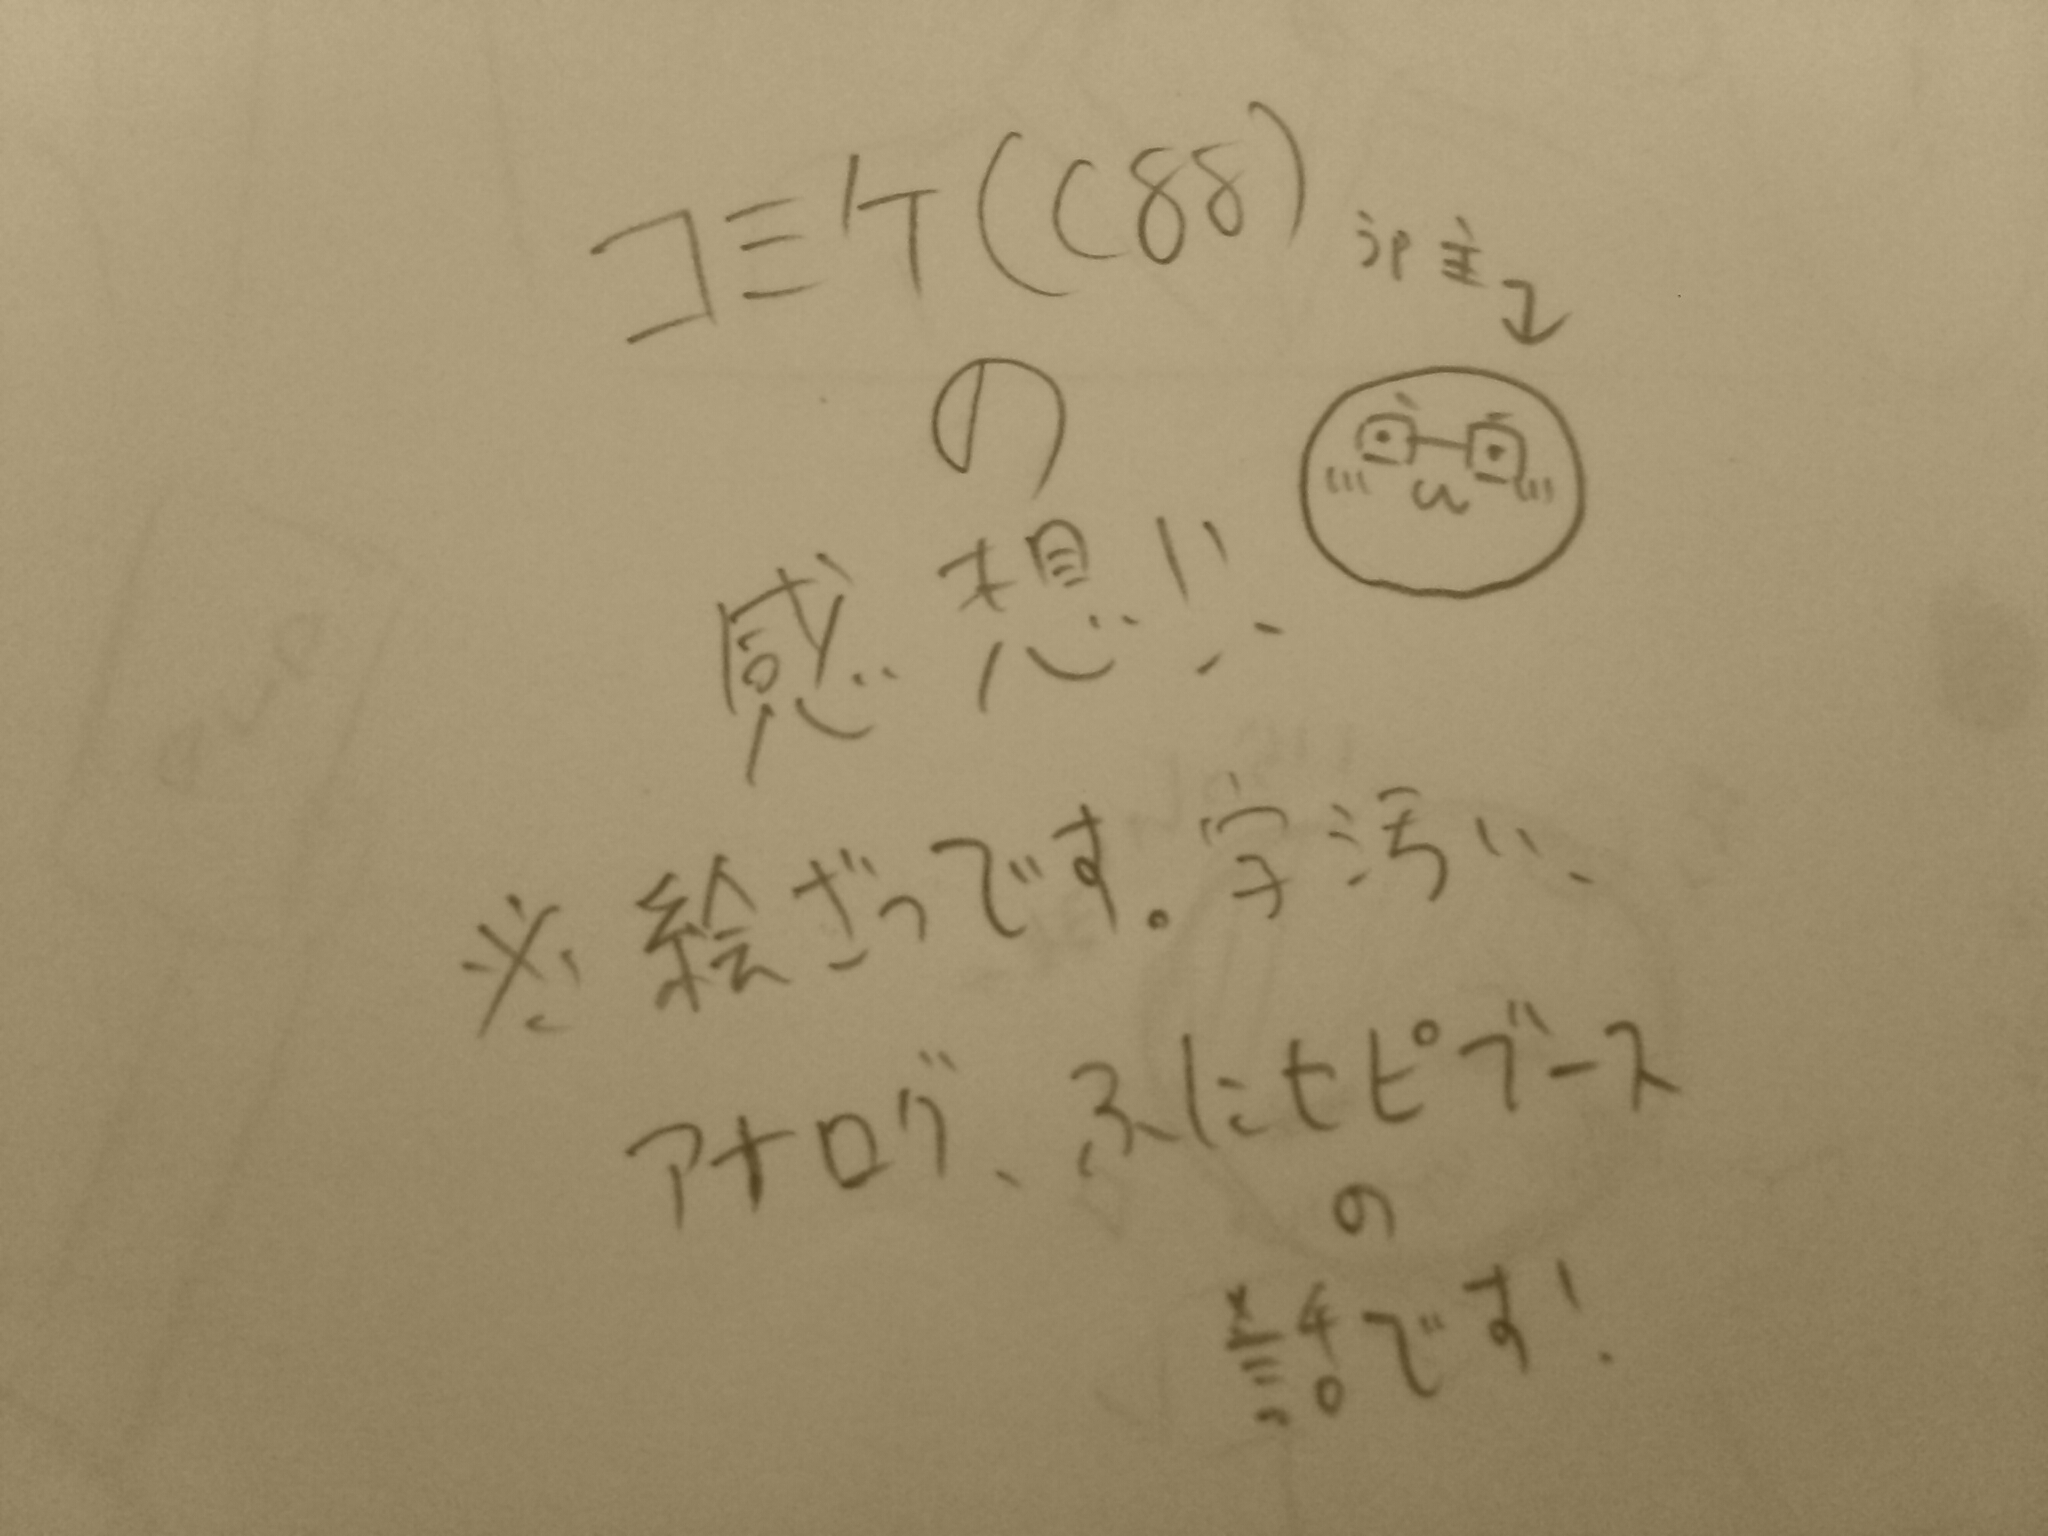 コミケ(C88)
うp主
の
感想!!
※絵ざっです。字汚い、
アナログ、ふにセピブース
の
話です!